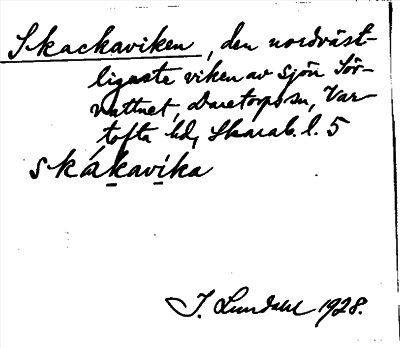 Skackaviken, den nordväst-
ligaste viken av sjön Sör-
vattnet, Daretorp sn, Var-
tofta hd, Skarab. l. 5
skákavika
J. Lundahl 1928.